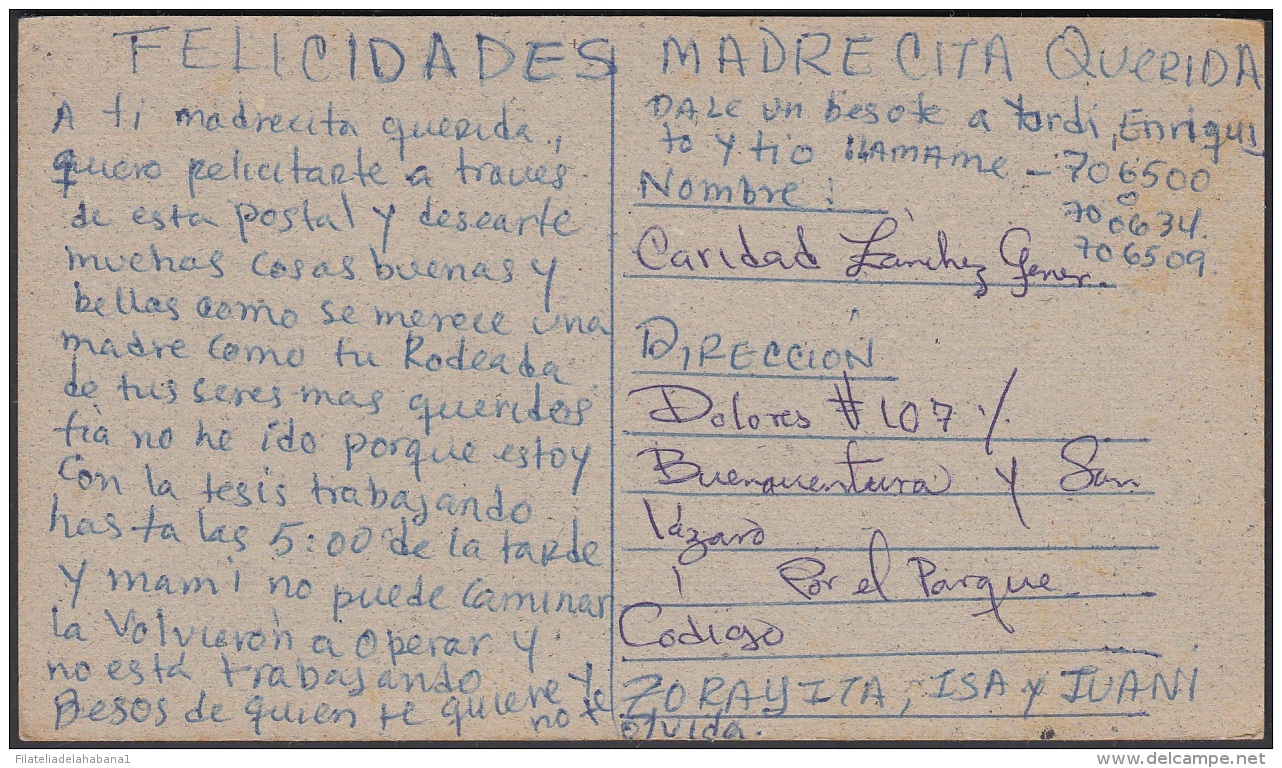 FELICIDADES MADRECITA QUERIDA
A ti madrecita querida,
quiero felicitarte a traves
de esta postal y desearte
muchas cosas buenas y
bellas como se merece una
madre como tu Rodeada
de tus seres mas queridos
tia no he ido porque estoy
con la tesis trabajando
hasta las 5:00 de la tarde
y mami no puede caminar
la volvieron a operar y
no está trabajando
Besos de quien te quiere y
no te olvida.
DALE un besote a Yordi, Enriqui
to y tio LLAMAME - 706500
o
700634.
706509.
Nombre:
Caridad Sánchez Gener.
DIRECCIÓN
Dolores # 107 %
Buenaventura y San
lázaro
Por el Parque
Codigo
ZORAYITA, ISA y IUANI
Filateliadelahabana1
delcampe.net